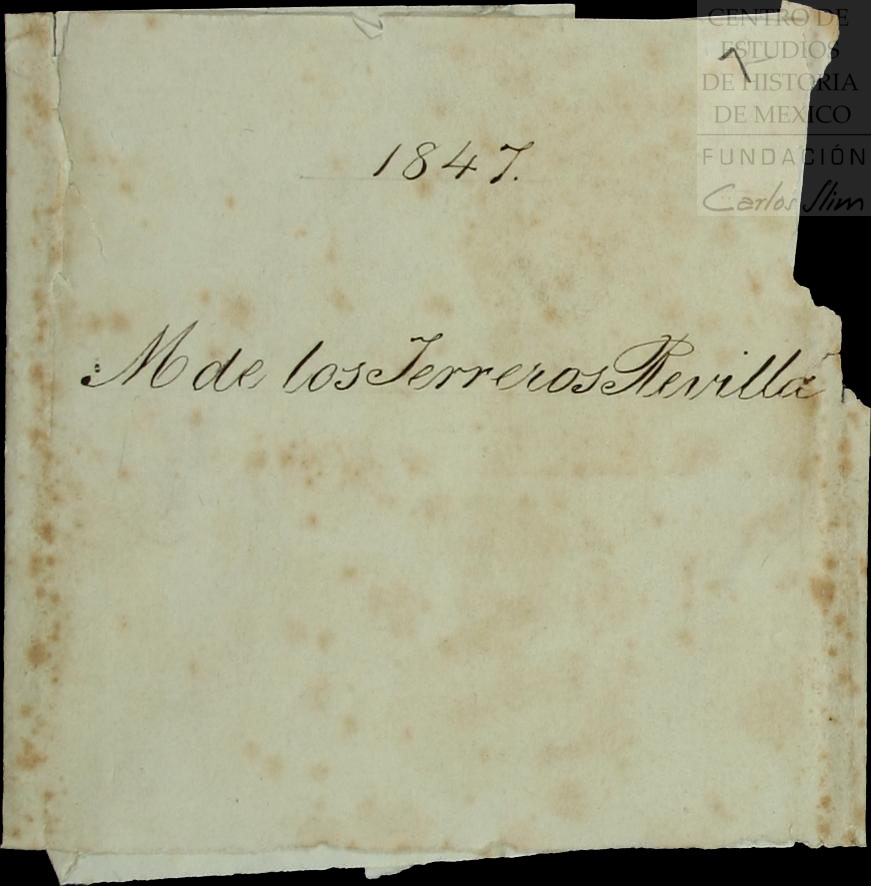 CENTRO DE
ESTUDIOS
DE HISTORIA
DE MEXICO
FUNDACIÓN
Carlos Slim
7
1847.
M de los Terreros Revilla